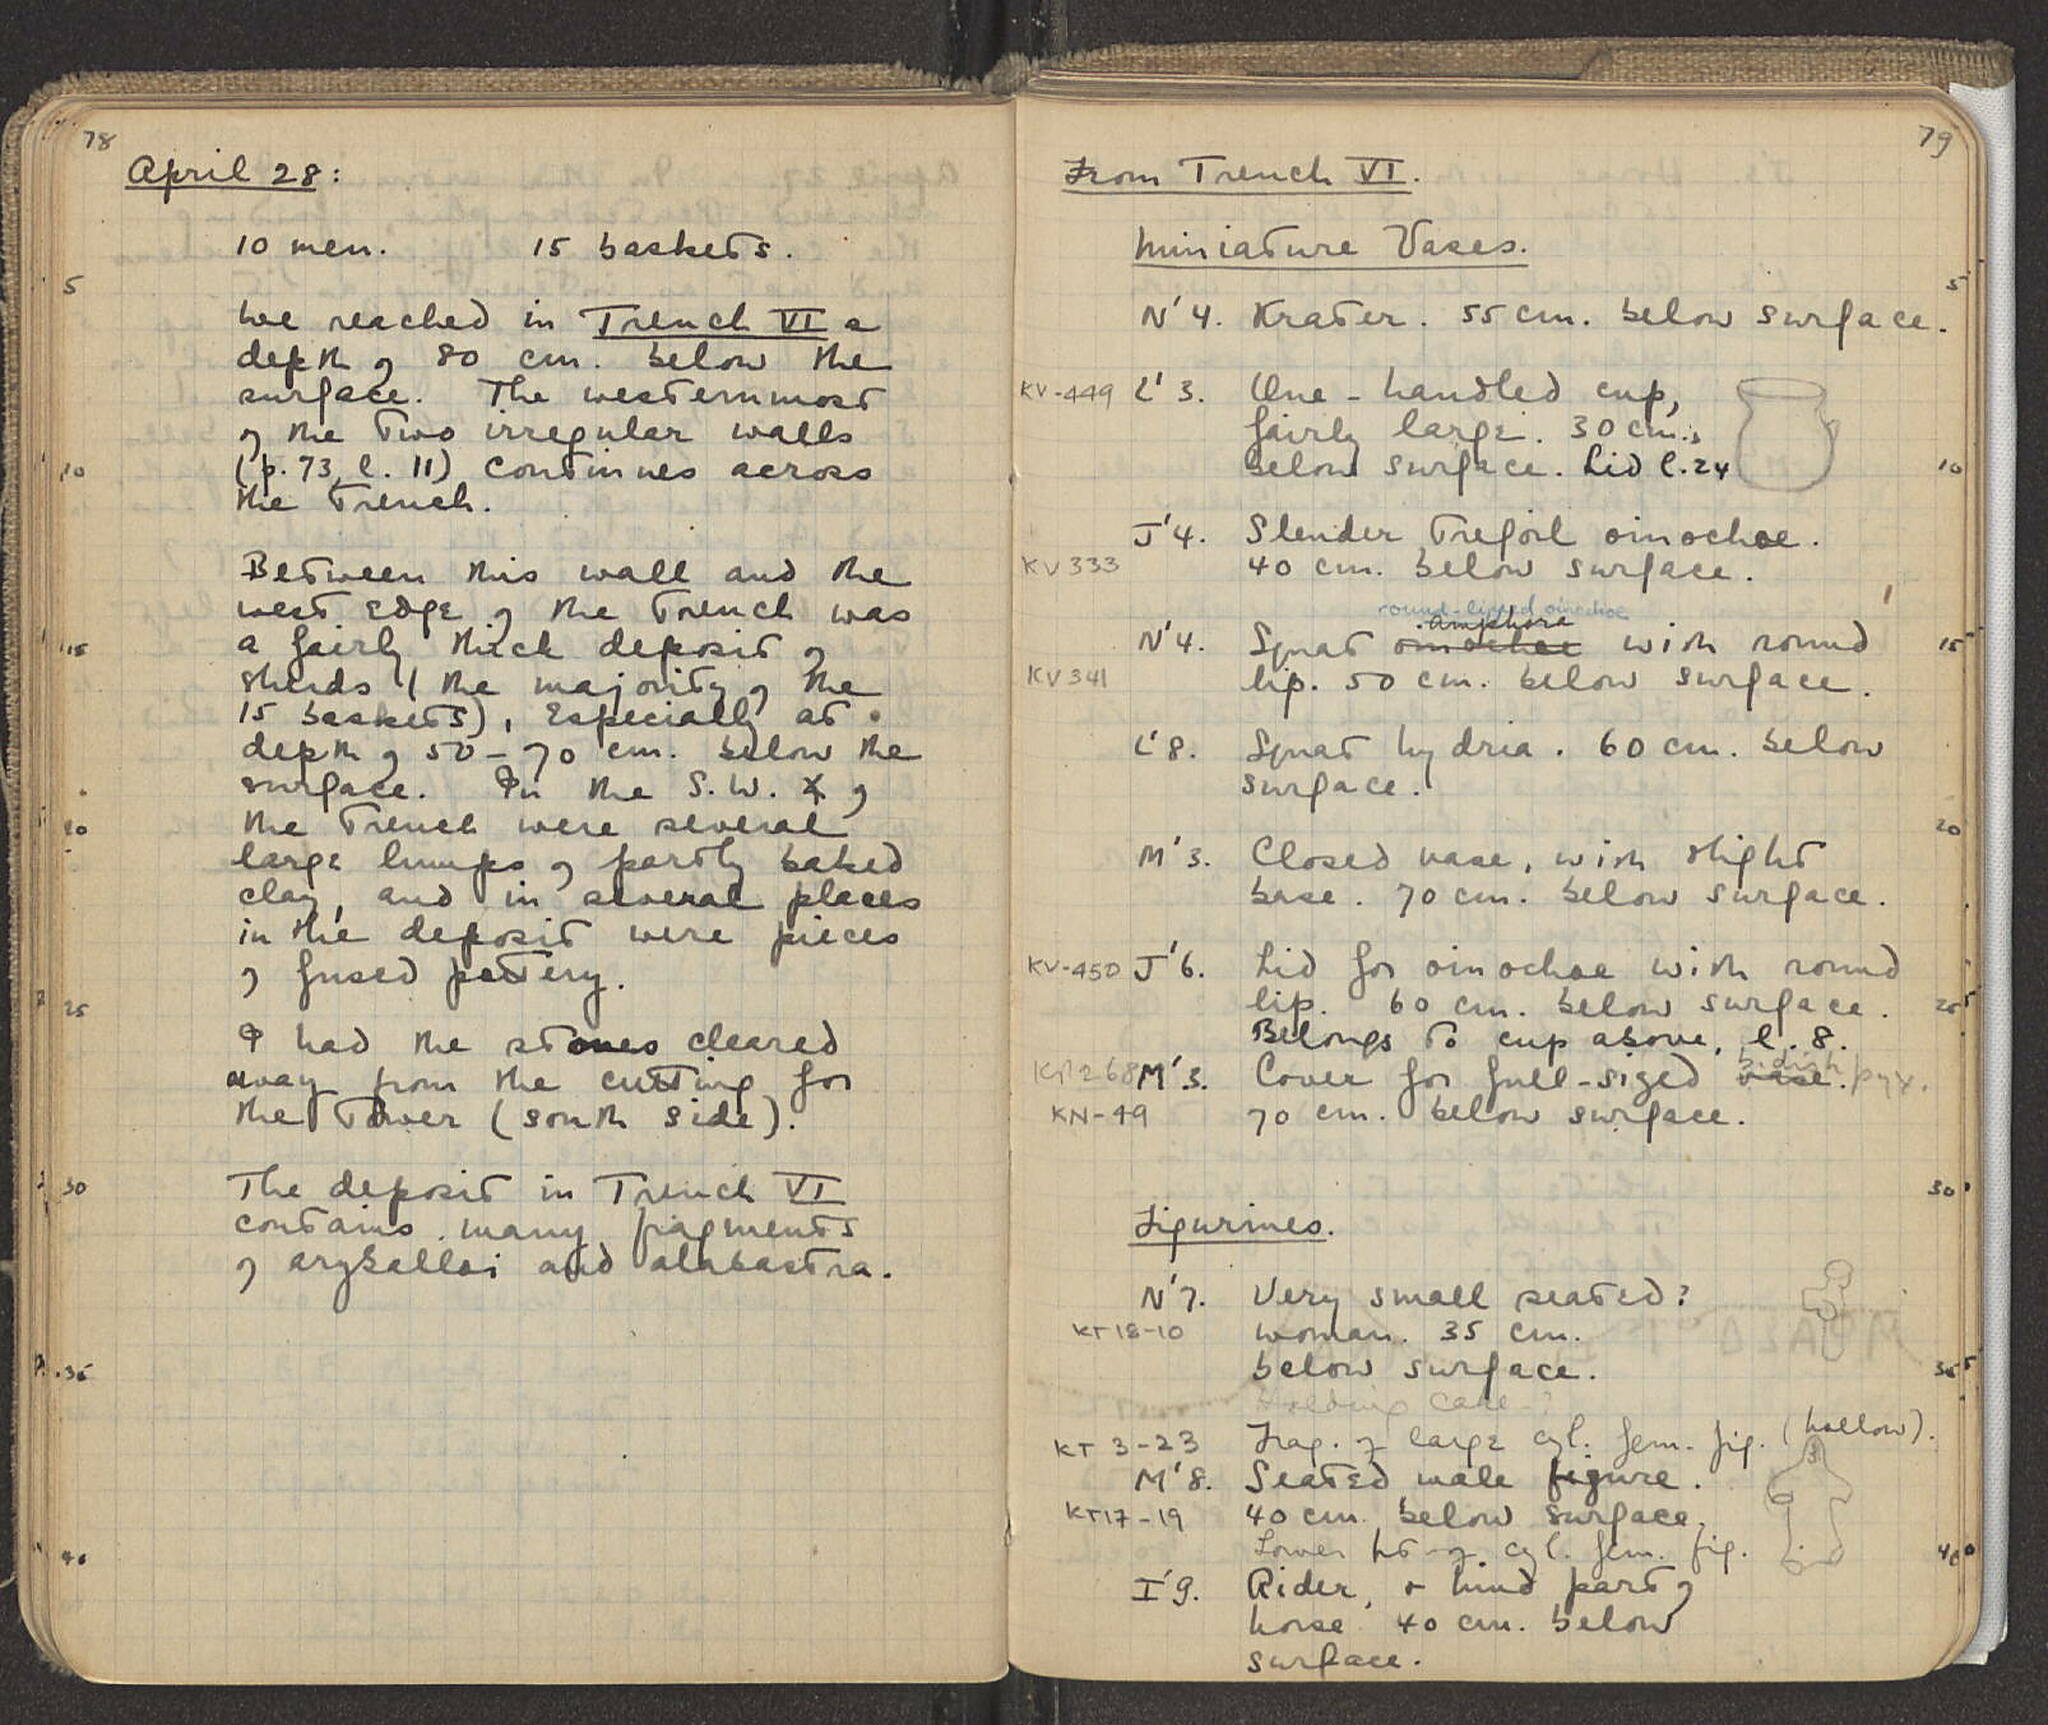 78
April 28:
10 men. 15 baskets.
5
We reached in Trench VI a
depth of 80 cm. below the
surface. The westernmost
of the two irregular walls
10
(p. 73, l. 11) continues across
the trench.
Between this wall and the
west edge of the trench was
15
a fairly thick deposit of
sherds (the majority of the
15 baskets), especially at
depth of 50-70 cm. below the
surface. In the S.W. ∢ of
20
the trench were several
large lumps of partly baked
clay, and in several places
in the deposit were pieces
of fused pottery.
25
I had the stones cleared
away from the cutting for
the Tower (south side).
30
The deposit in Trench VI
contains many fragments
of aryballoi and alabastra.
35
40
79
From Trench VI.
Miniature Vases.
5
N'4. Krater. 55 cm. below surface.
KV-449 L'3. One-handled cup,
fairly large. 30 cm.
below surface. Lid l.24
10
J'4. Slender trefoil oinochoe.
KV333 40 cm. below surface.
round-lipped oinochoe
amphora
N'4. Squat oinochoe with round
15
KV341 lip. 50 cm. below surface.
L'8. Squat hydria. 60 cm. below
surface.
20
M'3. Closed vase, with slight
base. 70 cm. below surface.
KV-450 J'6. Lid for oinochoe with round
lip. 60 cm. below surface.
25
Belongs to cup above, l. 8.
KP268 M'3. Cover for full-sized vase. pyx.
KN-49 70 cm. below surface.
30
Figurines.
N'7. Very small seated?
KT18-10 woman. 35 cm.
below surface.
35
holding cake?
KT 3-23 Frag. of large cyl. fem. fig. (hollow).
M'8. Seated male figure.
KT17-19 40 cm. below surface.
Lower pt of cyl. fem. fig.
40
I'9. Rider, & hind part of
horse 40 cm. below
surface.